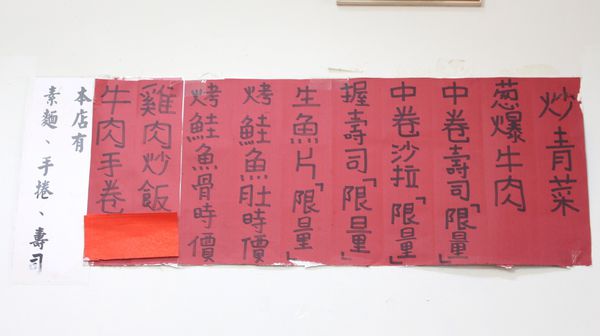 炒青菜
葱爆牛肉
中卷壽司「限量」
中卷沙拉「限量」
握壽司「限量」
生魚片「限量」
烤鮭魚肚時價
烤鮭魚骨時價
雞肉炒飯
牛肉手卷
本店有
素麵、手捲、壽司